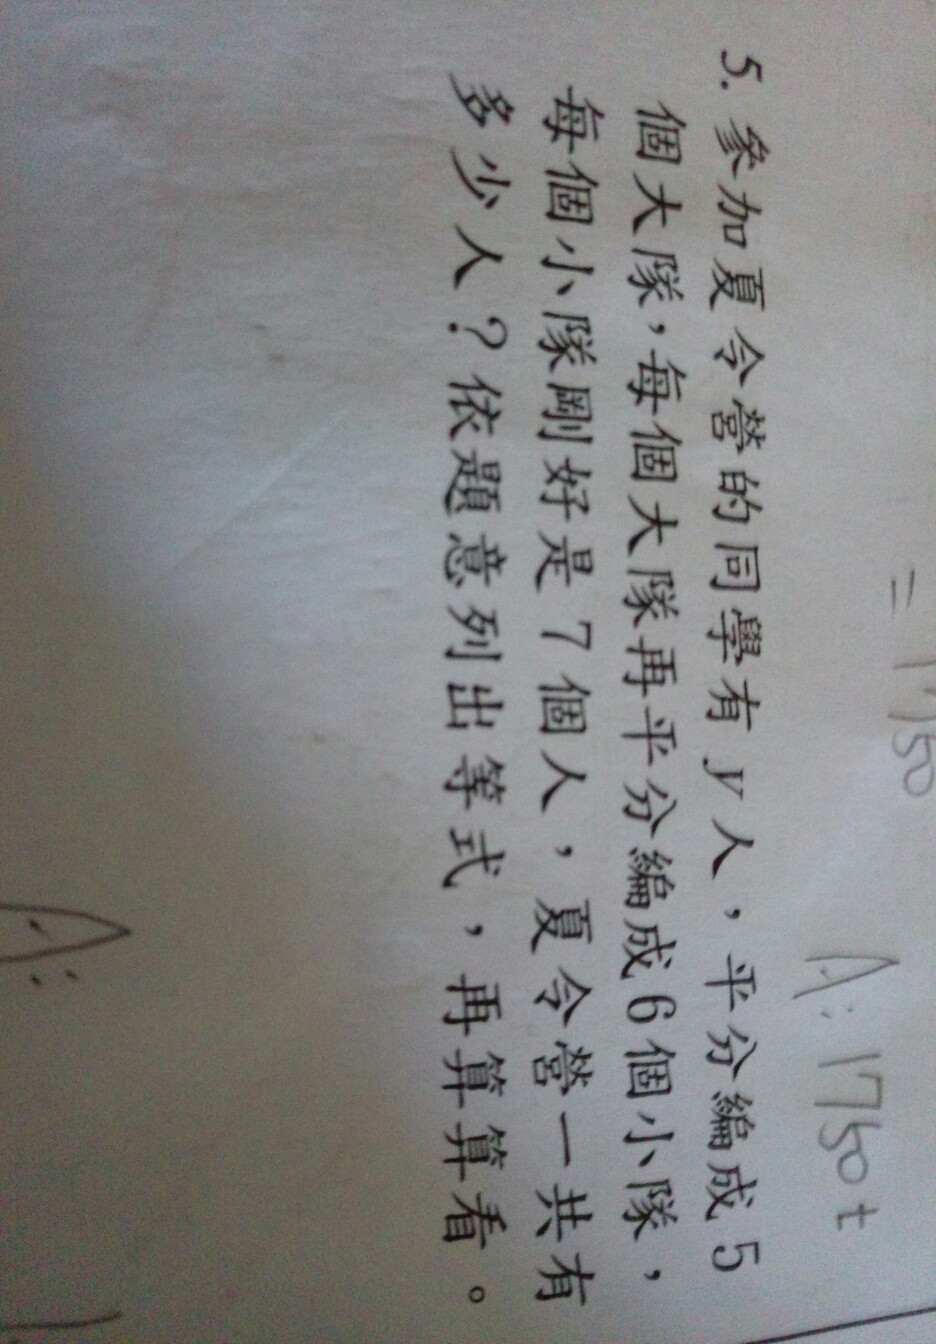 = 1750
A: 1750 t
5. 參加夏令營的同學有 y 人，平分編成 5
個大隊，每個大隊再平分編成 6 個小隊，
每個小隊剛好是 7 個人，夏令營一共有
多少人？依題意列出等式，再算算看。
A: